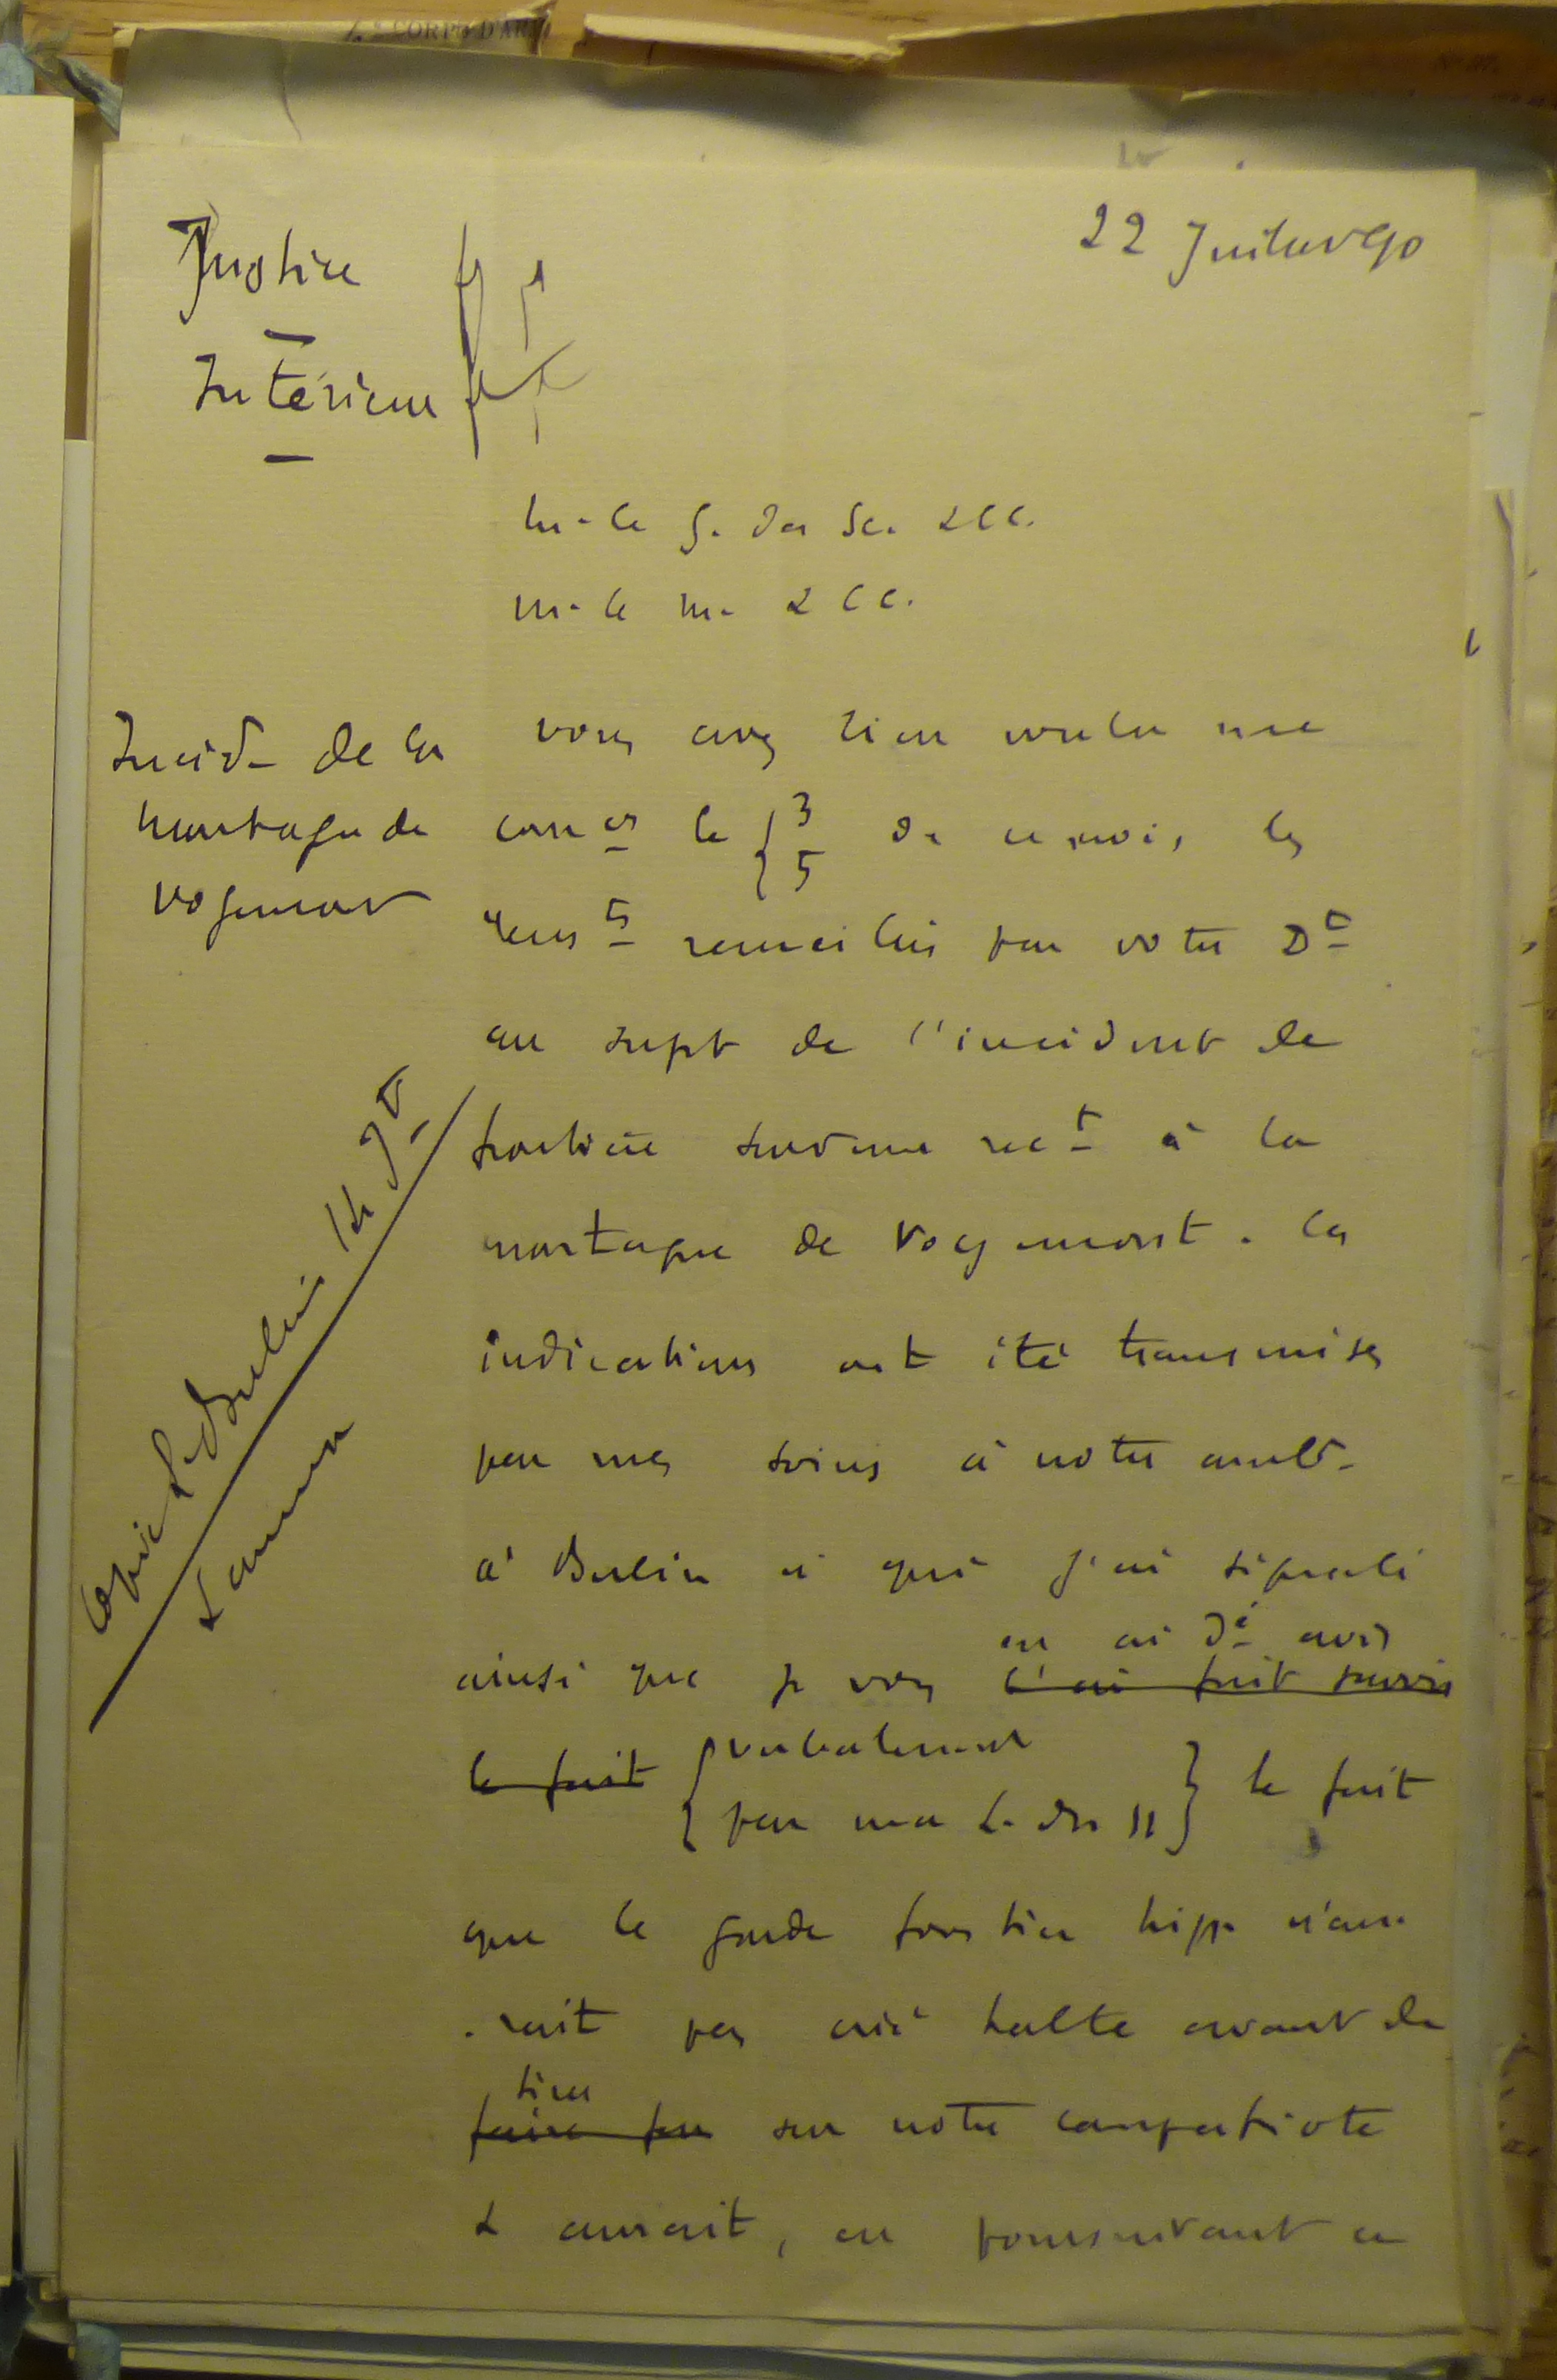 CORPS D'AR
22 Juillet 90
Justice
—
Intérieur
—
M. le G. des Sc. &cc.
M. le M. &cc.
Incid. de la
montagne de
Vogemont
vous avez bien voulu me
comm er le { 3 / 5 de ce mois, les
rens ts recueillis par votre Dt
au sujet de l'incident de
frontière survenu rec t à la
montagne de Vogemont. Ces
indications ont été transmises
par mes soins à notre amb.
à Berlin à qui j'ai signalé
en ai dé avis
ainsi que je vous l'ai fait savoir
le fait { verbalement / par ma L. du 11 } le fait
que le garde forestier hipp n'au-
-rait pas crié halte avant de
tirer
faire feu sur notre compatriote
& aurait, en poursuivant ce
Copie à Berlin 14 Jt
& annexe